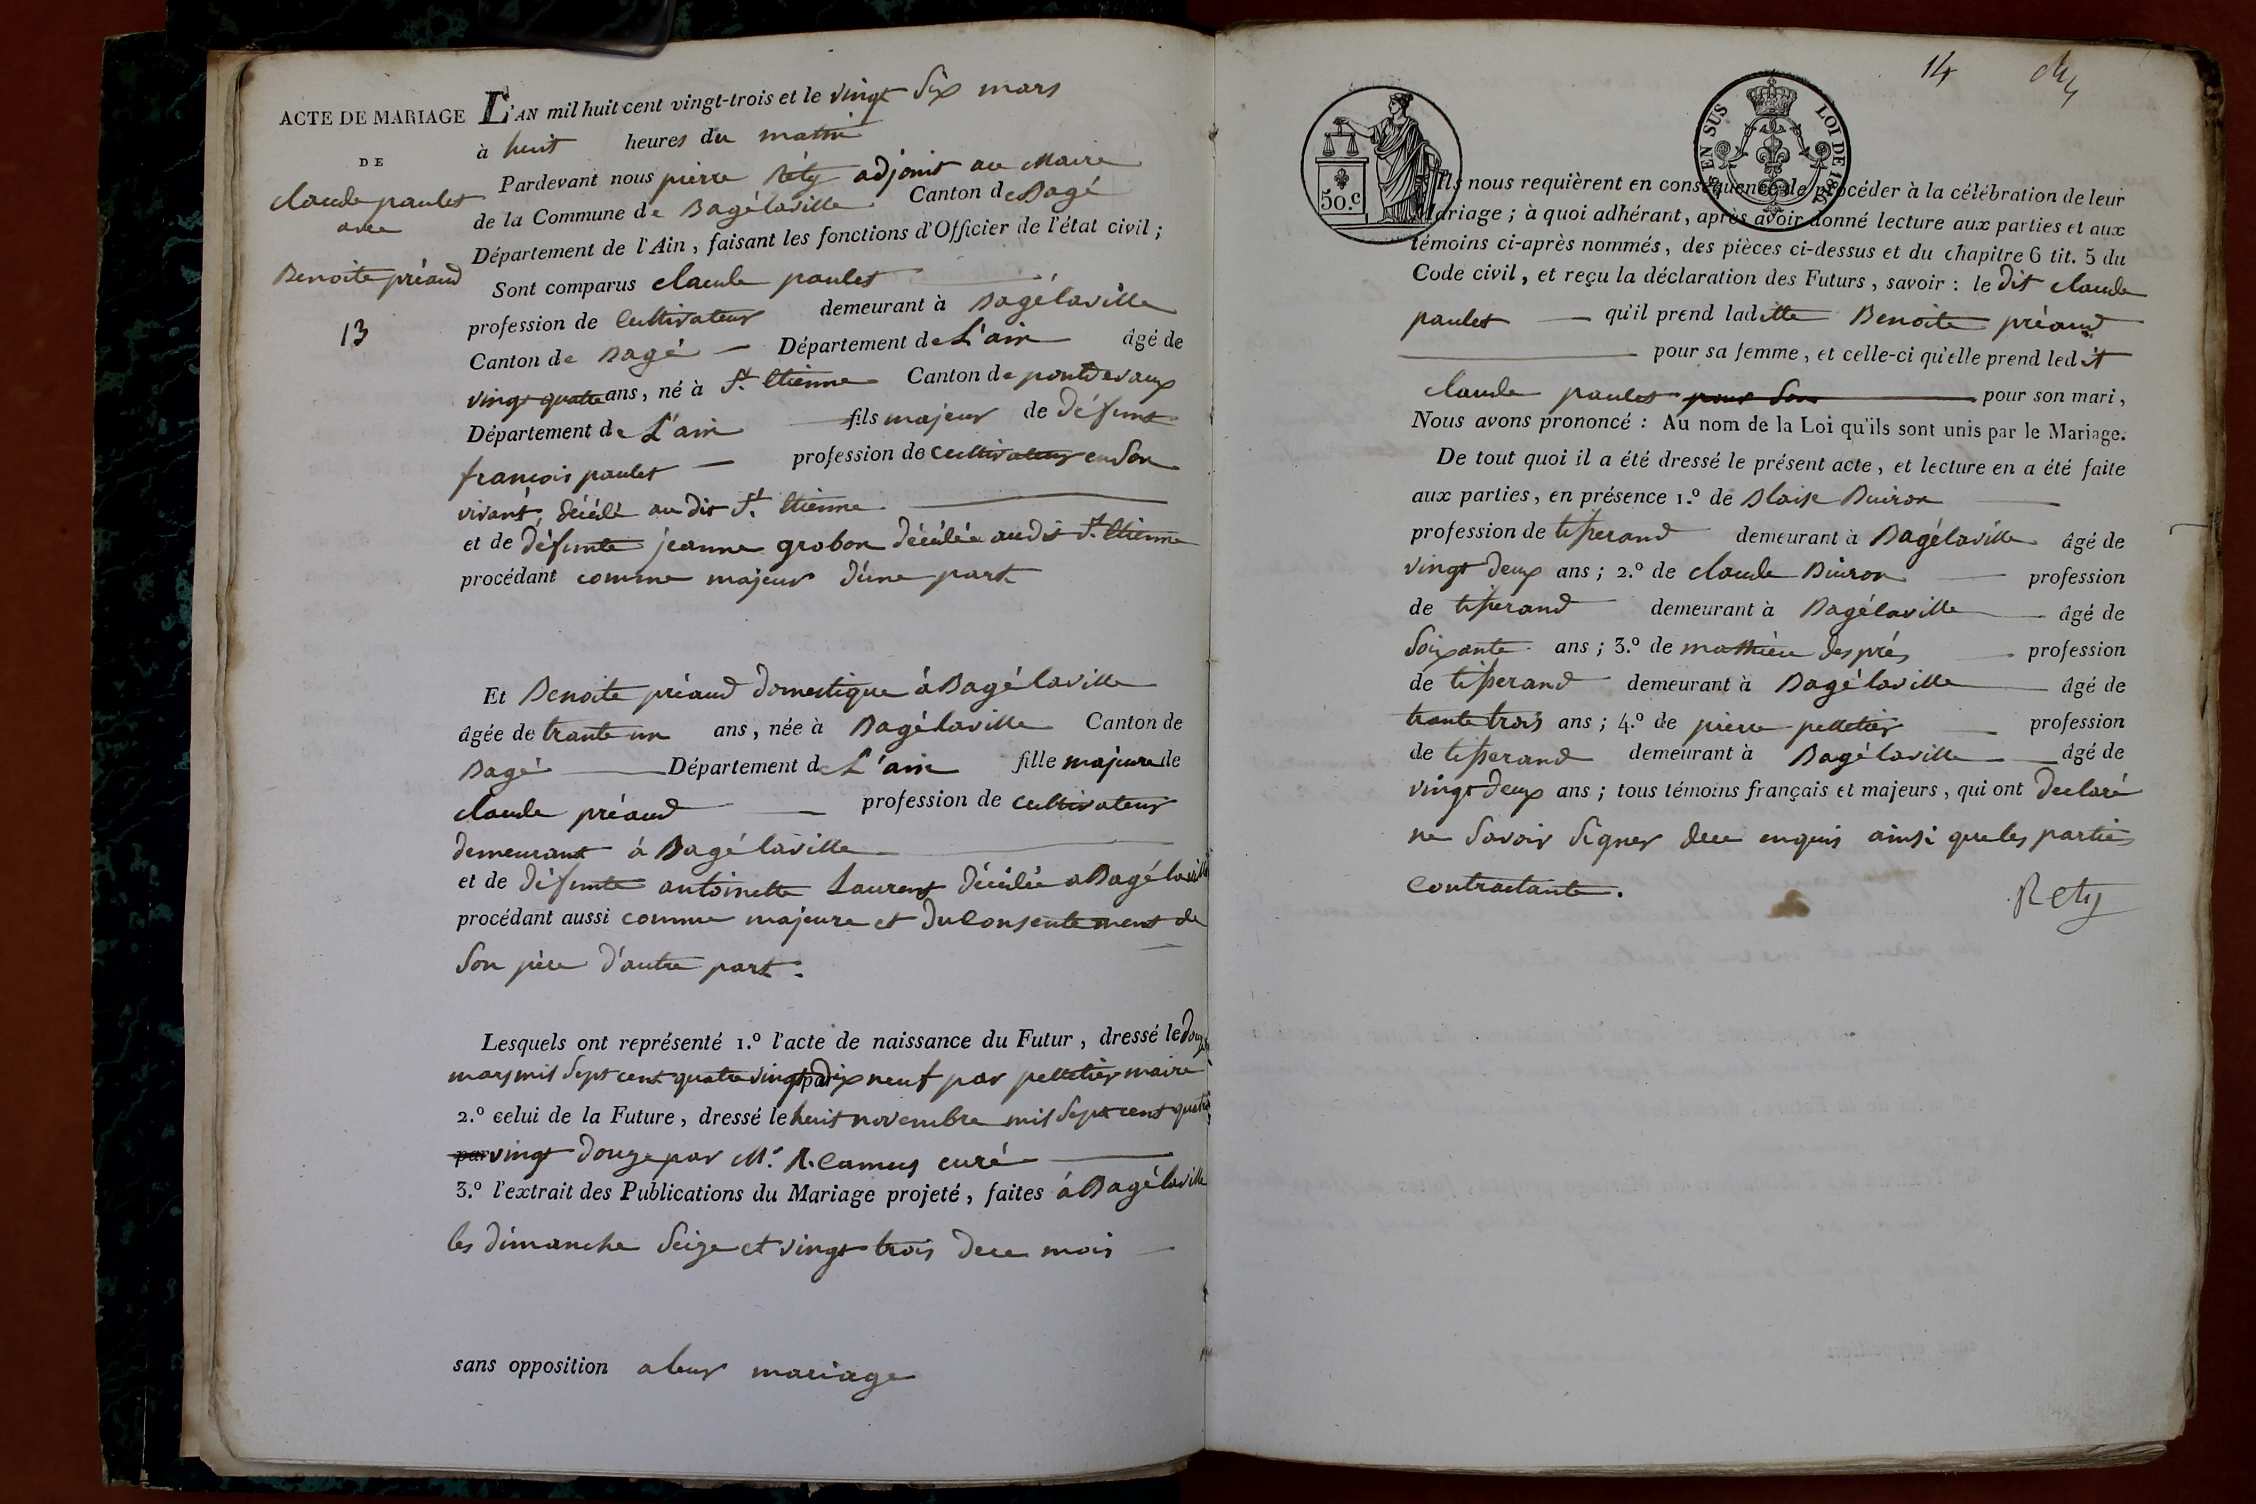 ACTE DE MARIAGE
DE
claude paulet
avec
Benoite préaud
13
L'AN mil huit cent vingt-trois et le vingt six mars
à huit heures du matin
Pardevant nous pierre Réty adjoint au Maire
de la Commune de Bagélaville Canton de Bagé
Département de l'Ain, faisant les fonctions d'Officier de l'état civil;
Sont comparus claude paulet
profession de Cultivateur demeurant à Bagélaville
Canton de Bagé Département de L'ain âgé de
vingt quatre ans, né à St. Etienne Canton de pontdevaux
Département de L'ain fils majeur de défunt
françois paulet profession de Cultivateur en son
vivant, décédé au dit St. Etienne
et de défunte jeanne grobon décédée audit St. Etienne
procédant comme majeur d'une part
Et Benoite préaud domestique à Bagélaville
âgée de trante un ans, née à Bagélaville Canton de
Bagé Département de L'ain fille majeure de
claude préaud profession de cultivateur
demeurant à Bagélaville
et de défunte antoinette Laurent décédée a Bagélaville
procédant aussi comme majeure et du Consentement de
Son père d'autre part.
Lesquels ont représenté 1.º l'acte de naissance du Futur, dressé le douze
mars mil sept cent quatre vingt par dix neuf par pelletier maire
2.º celui de la Future, dressé le huit novembre mil sept cent quatre
par vingt douze par Mr. R. Camus curé
3.º l'extrait des Publications du Mariage projeté, faites à Bagélaville
les dimanche Seize et vingt trois de ce mois
sans opposition a leur mariage
14
50.c
EN SUS LOI DE 18
Ils nous requièrent en conséquence de procéder à la célébration de leur
Mariage; à quoi adhérant, après avoir donné lecture aux parties et aux
témoins ci-après nommés, des pièces ci-dessus et du chapitre 6 tit. 5 du
Code civil, et reçu la déclaration des Futurs, savoir: le dit claude
paulet qu'il prend ladite Benoite préaud
pour sa femme, et celle-ci qu'elle prend ledit
claude paulet pour son pour son mari,
Nous avons prononcé: Au nom de la Loi qu'ils sont unis par le Mariage.
De tout quoi il a été dressé le présent acte, et lecture en a été faite
aux parties, en présence 1.º de Blaise Buiron
profession de tisserand demeurant à Bagélaville âgé de
vingt deux ans; 2.º de claude Buiron profession
de tisserand demeurant à Bagélaville âgé de
Soixante ans; 3.º de mathieu després profession
de tisserand demeurant à Bagélaville âgé de
trante trois ans; 4.º de pierre pelletier profession
de tisserand demeurant à Bagélaville âgé de
vingt deux ans; tous témoins français et majeurs, qui ont declaré
ne Savoir Signer de ce enquis ainsi que les partie
Contractante.
Rety